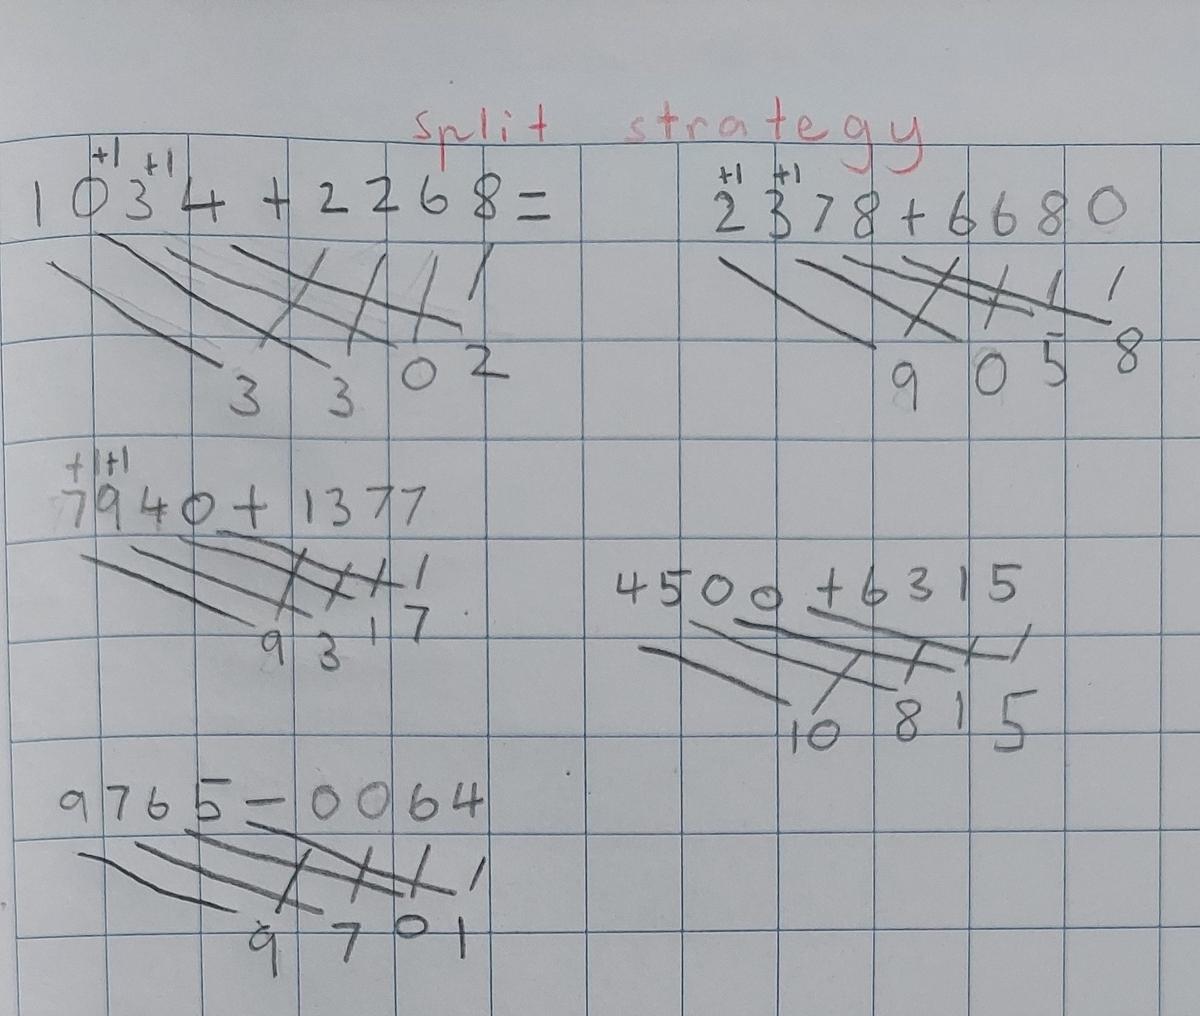 split strategy
+1 +1
1034 + 2268 =
3 3 0 2
+1 +1
2378 + 6680
9 0 5 8
+1 +1
7940 + 1377
9 3 1 7
4500 + 6315
10 8 1 5
9765 - 0064
9 7 0 1